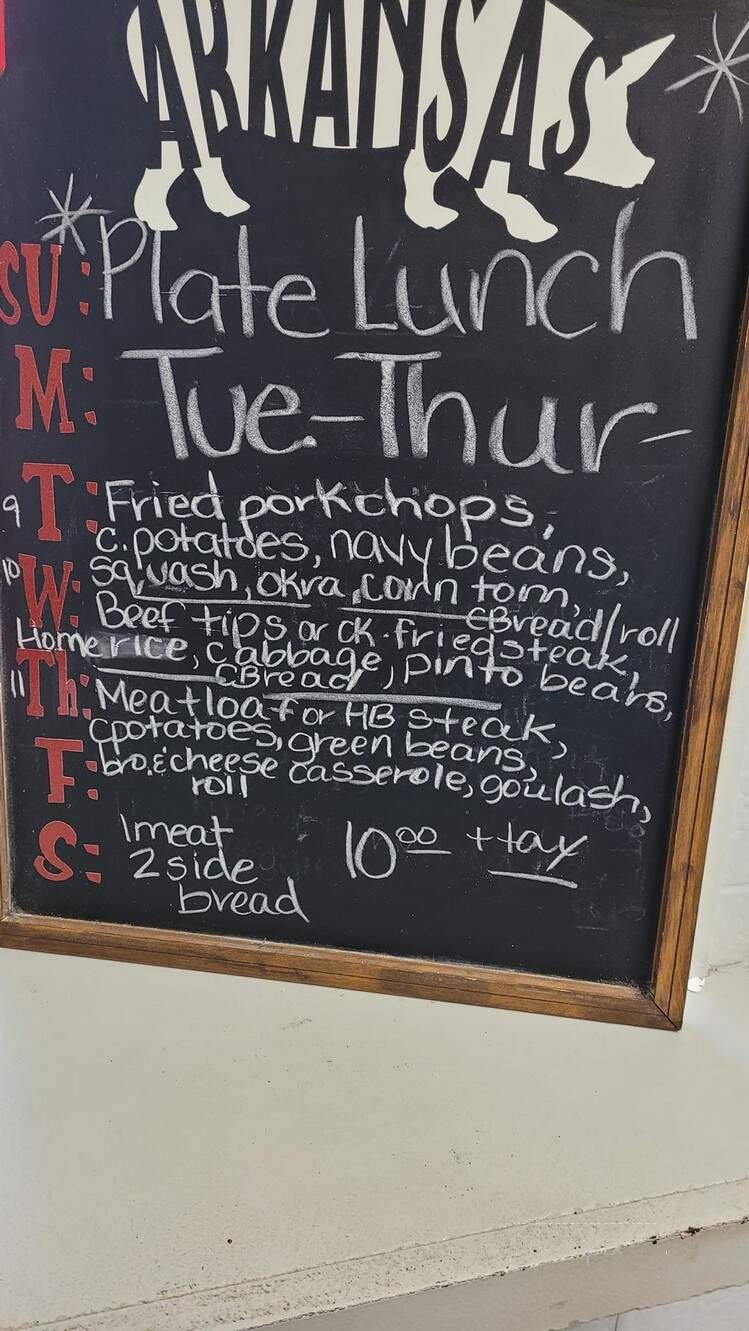 ARKANSAS
SU: Plate Lunch
M: Tue-Thur-
9 T: Fried porkchops,
c.potatoes, navy beans,
squash, okra, corn tom,
CBread/roll
10 W: Beef tips or ck.fried steak,
Home rice, cabbage, pinto beans,
CBread
11 Th: Meatloaf or HB steak,
cpotatoes, green beans,
F: bro.&cheese casserole, goulash,
roll
S: 1meat 10⁰⁰ + tax
2side
bread